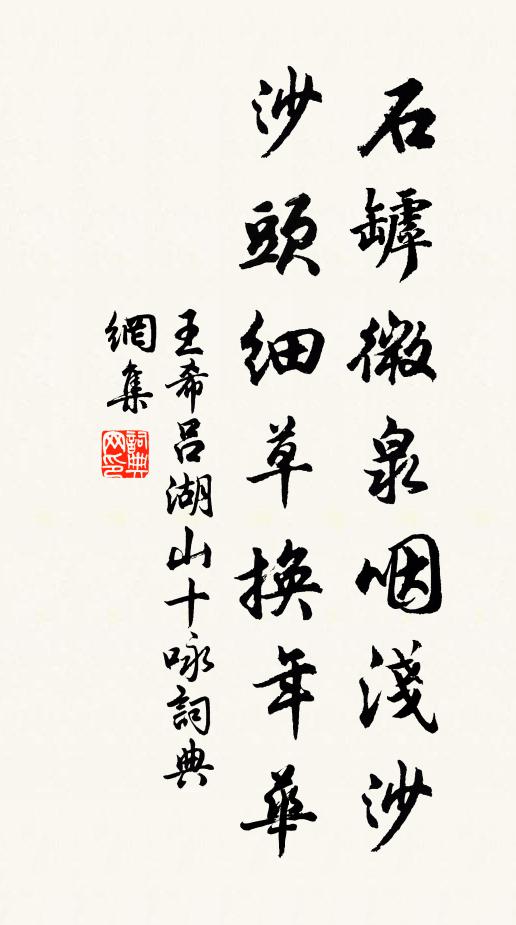 石罅微泉咽淺沙
沙頭細草換年華
王希呂湖山十咏詞典
網集
詞典網印